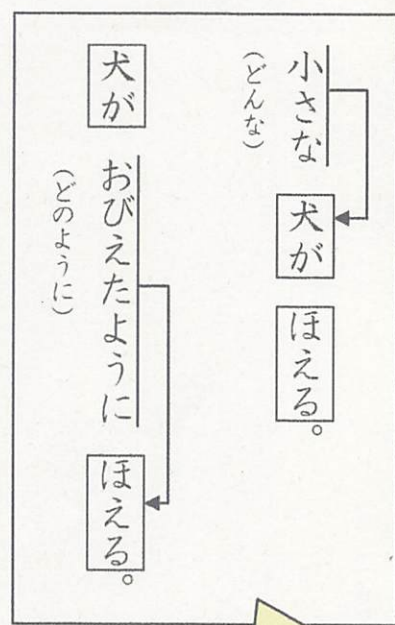 小さな 犬が ほえる。
(どんな)
犬が おびえたように ほえる。
(どのように)